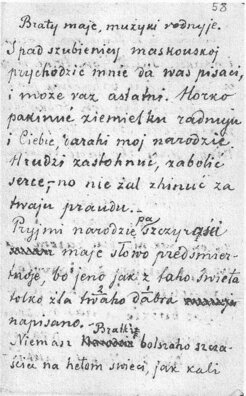 58
Braty maje, mużyki rodnyje.
Z pad szubienicy maskouskoj
prychodzić mnie da was pisaci,
i może raz astatni. Horko
pakinuć ziemielku rodnuju
i Ciebie, darahi moj narodzie.
Hrudzi zastohnuć, zabolić
serce,- no nie żal zhinuć za
twaju praudu.-
Pryjmi narodzie pa szczyrasci
maje słowo predśmier-
tnoje, bo jeno jak z taho świeta
tolko dla twaho dabra
napisano.
Bratki
Niemasz bolszaho szcza-
ścia na hetom świeci, jak kali